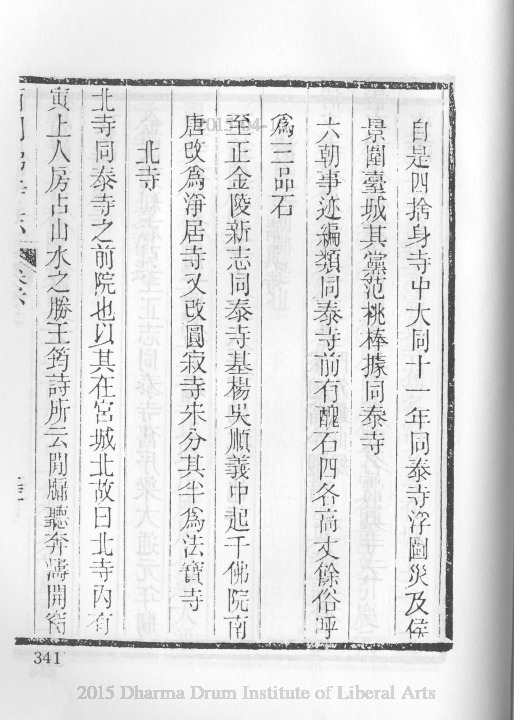 自是四捨身寺中大同十一年同泰寺浮圖災及侯
景圍臺城其黨范桃棒據同泰寺
六朝事迹編類同泰寺前有醜石四各高丈餘俗呼
爲三品石
至正金陵新志同泰寺基楊吳順義中起千佛院南
唐改爲淨居寺又改圓寂寺宋分其半爲法寶寺
北寺
北寺同泰寺之前院也以其在宮城北故曰北寺內有
寅上人房占山水之勝王筠詩所云閒牖聽奔濤開窗
341
2015 Dharma Drum Institute of Liberal Arts